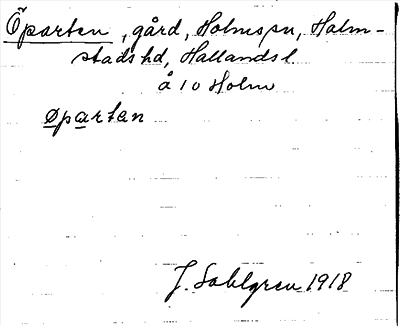 Öparten, gård, Holms sn, Halm-
stads hd, Hallands l.
å 10 Holm
øparten
J. Sahlgren 1918